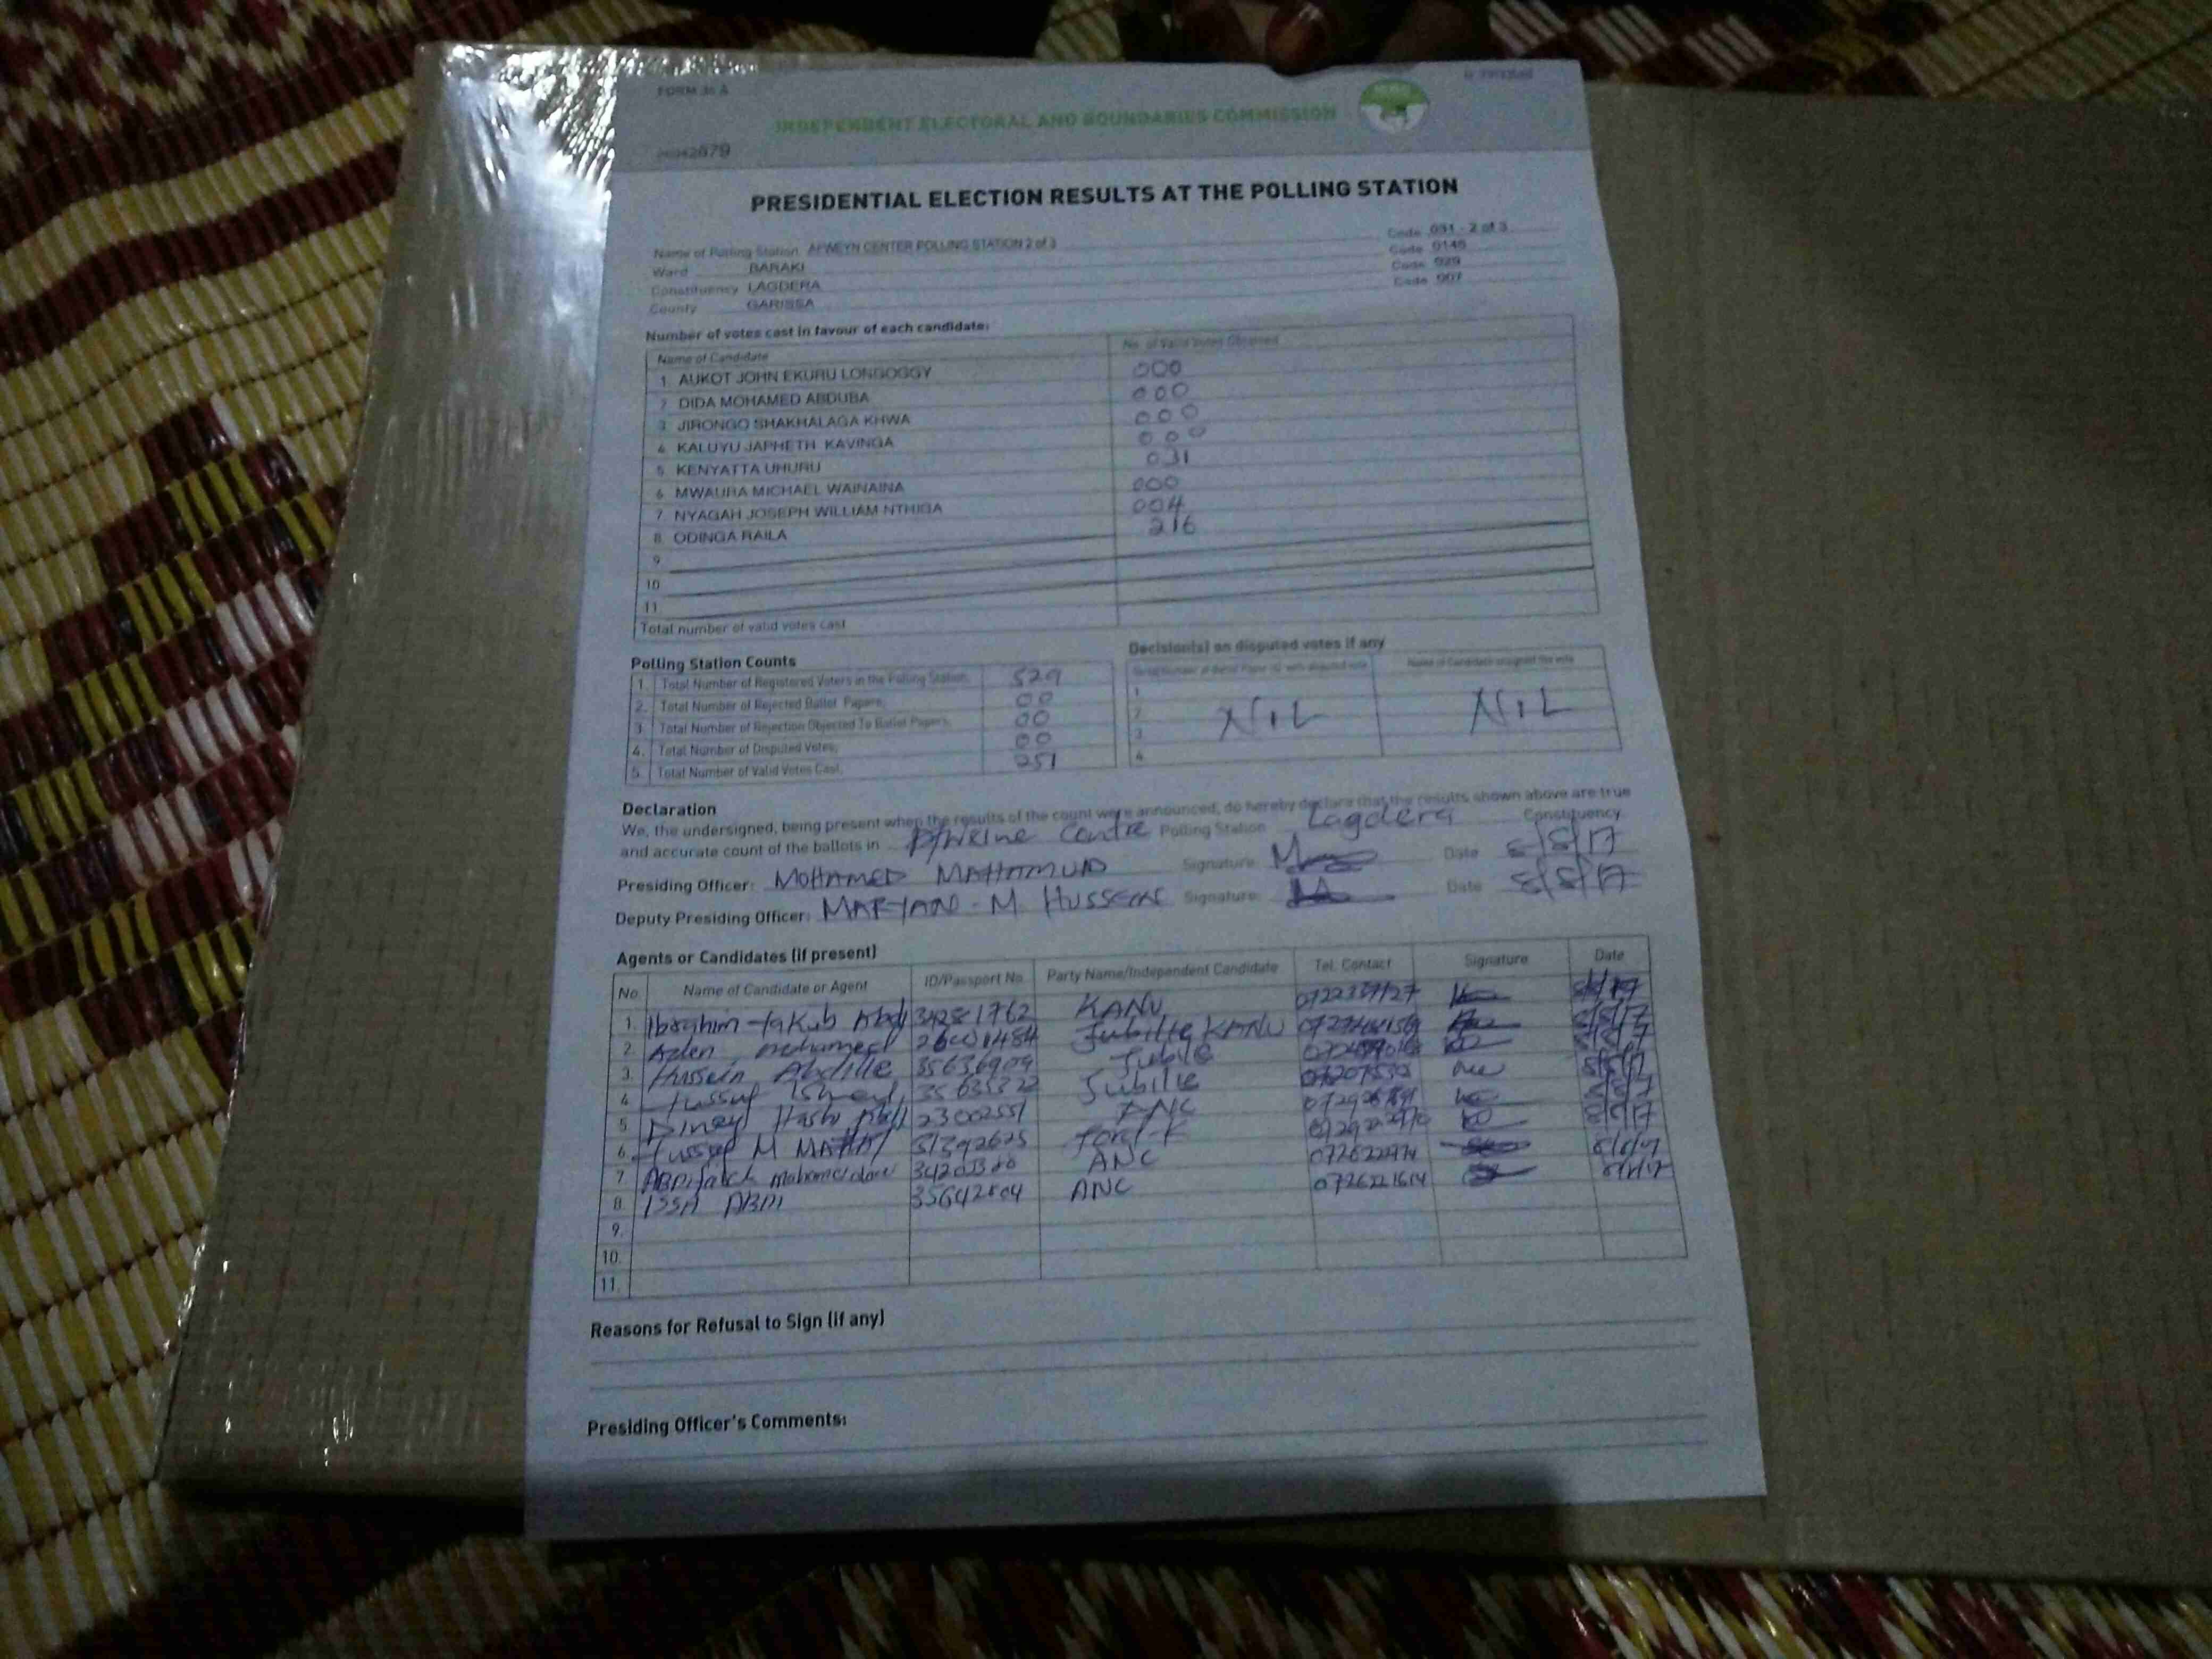 FORM 34 A
INDEPENDENT ELECTORAL AND BOUNDARIES COMMISSION
PRESIDENTIAL ELECTION RESULTS AT THE POLLING STATION
Name of Polling Station AFWEYN CENTER POLLING STATION 2 of 3 Code 031 - 2 of 3
Ward BARAKI Code 0145
Constituency LAGDERA Code 029
County GARISSA Code 007
Number of votes cast in favour of each candidate:
Name of Candidate No. of Valid Votes Obtained
1. AUKOT JOHN EKURU LONGOGGY 000
2. DIDA MOHAMED ABDUBA 000
3. JIRONGO SHAKHALAGA KHWA 000
4. KALUYU JAPHETH KAVINGA 000
5. KENYATTA UHURU 031
6. MWAURA MICHAEL WAINAINA 000
7. NYAGAH JOSEPH WILLIAM NTHIGA 004
8. ODINGA RAILA 216
9
10
11
Total number of valid votes cast
Polling Station Counts
1. Total Number of Registered Voters in the Polling Station. 529
2. Total Number of Rejected Ballot Papers. 00
3. Total Number of Rejection Objected To Ballot Papers. 00
4. Total Number of Disputed Votes. 00
5. Total Number of Valid Votes Cast. 251
Decision(s) on disputed votes if any
1
2
3
4
NIL NIL
Declaration
We, the undersigned, being present when the results of the count were announced, do hereby declare that the results shown above are true
and accurate count of the ballots in Centre Polling Station Lagdera Constituency
Presiding Officer: MOHAMED MAHAMUD Signature: Date 8/8/17
Deputy Presiding Officer: MARYAN M. HUSSEIN Signature: Date 8/8/17
Agents or Candidates (if present)
No. Name of Candidate or Agent ID/Passport No Party Name/Independent Candidate Tel. Contact Signature Date
1. Ibrahim Yakub Abdi 34281762 KANU
2. mohamed Jubilie KANU 8/8/17
3. Hussein Abdille 35636909 Jubile
4. Jubilie 8/8/17
5. 23002551 ANC
6. M 31392625 Ford-K 8/8/17
7 ANC 0722622474 8/8/17
8. ISSA ABDI 35642804 ANC 0726221614 8/8/17
9.
10.
11.
Reasons for Refusal to Sign (if any)
Presiding Officer's Comments: